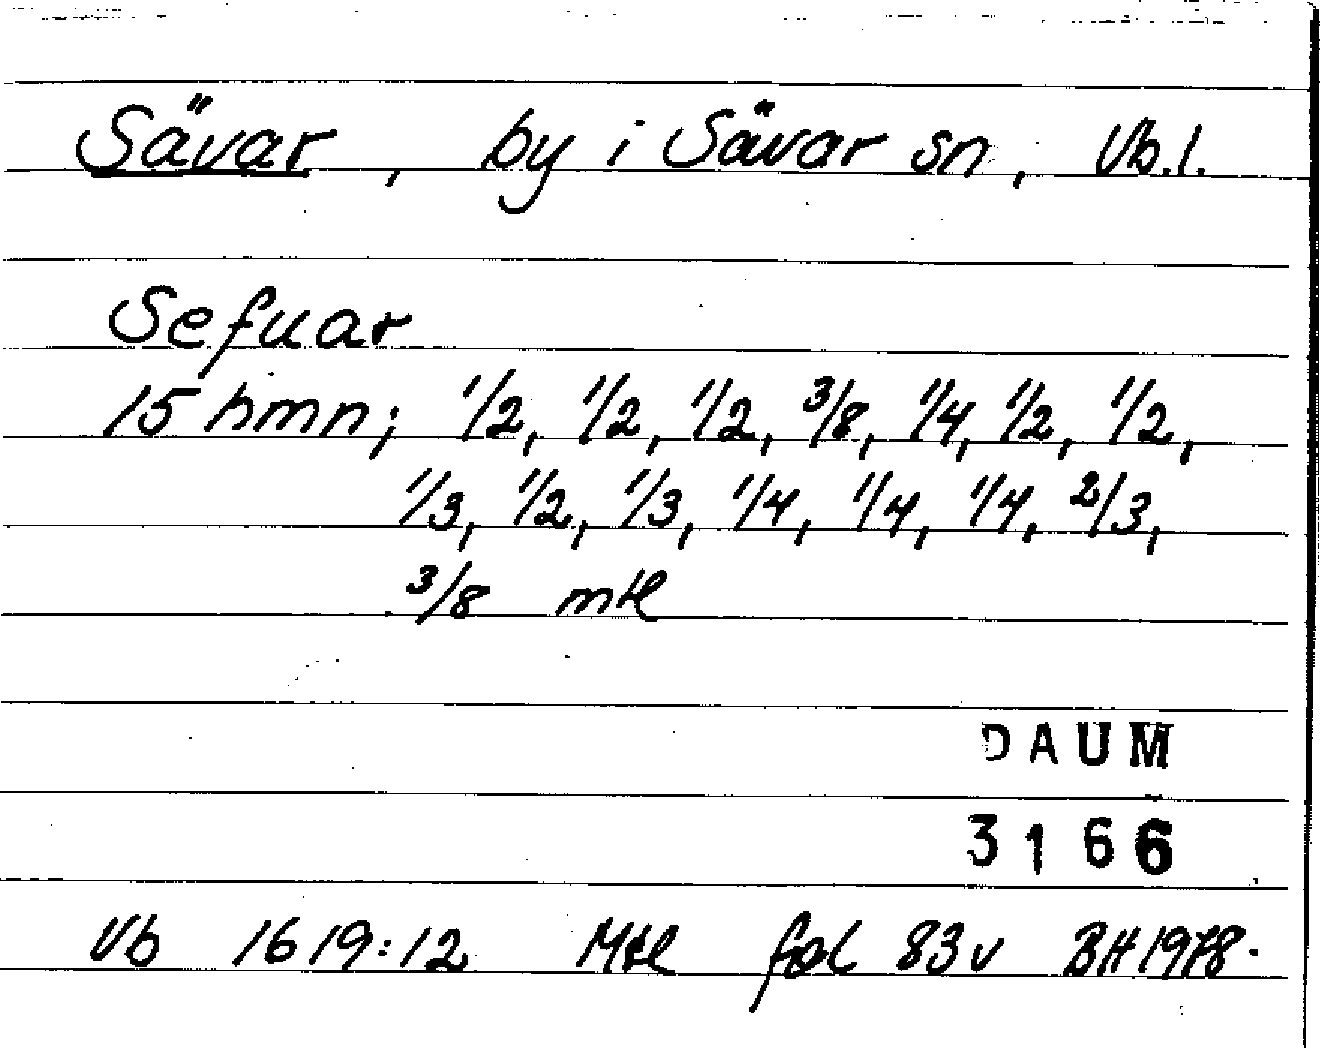 Sävar, by i Sävar sn, Vb.l.
Sefuar
15 hmn; 1/2, 1/2, 1/2, 3/8, 1/4, 1/2, 1/2,
1/3, 1/2, 1/3, 1/4, 1/4, 1/4, 2/3,
3/8 mtl
DAUM
3166
Vb 1619:12 Mtl fol 83v BH 1978.